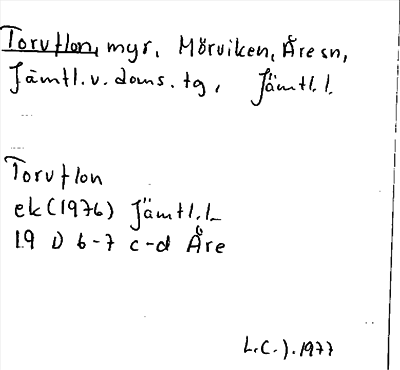 Torvflon, myr, Mörviken, Åre sn,
Jämtl. v. doms. tg, Jämtl. l.
Torvflon
ek (1976) Jämtl. l.
19 D 6-7 c-d Åre
L.C.J. 1977